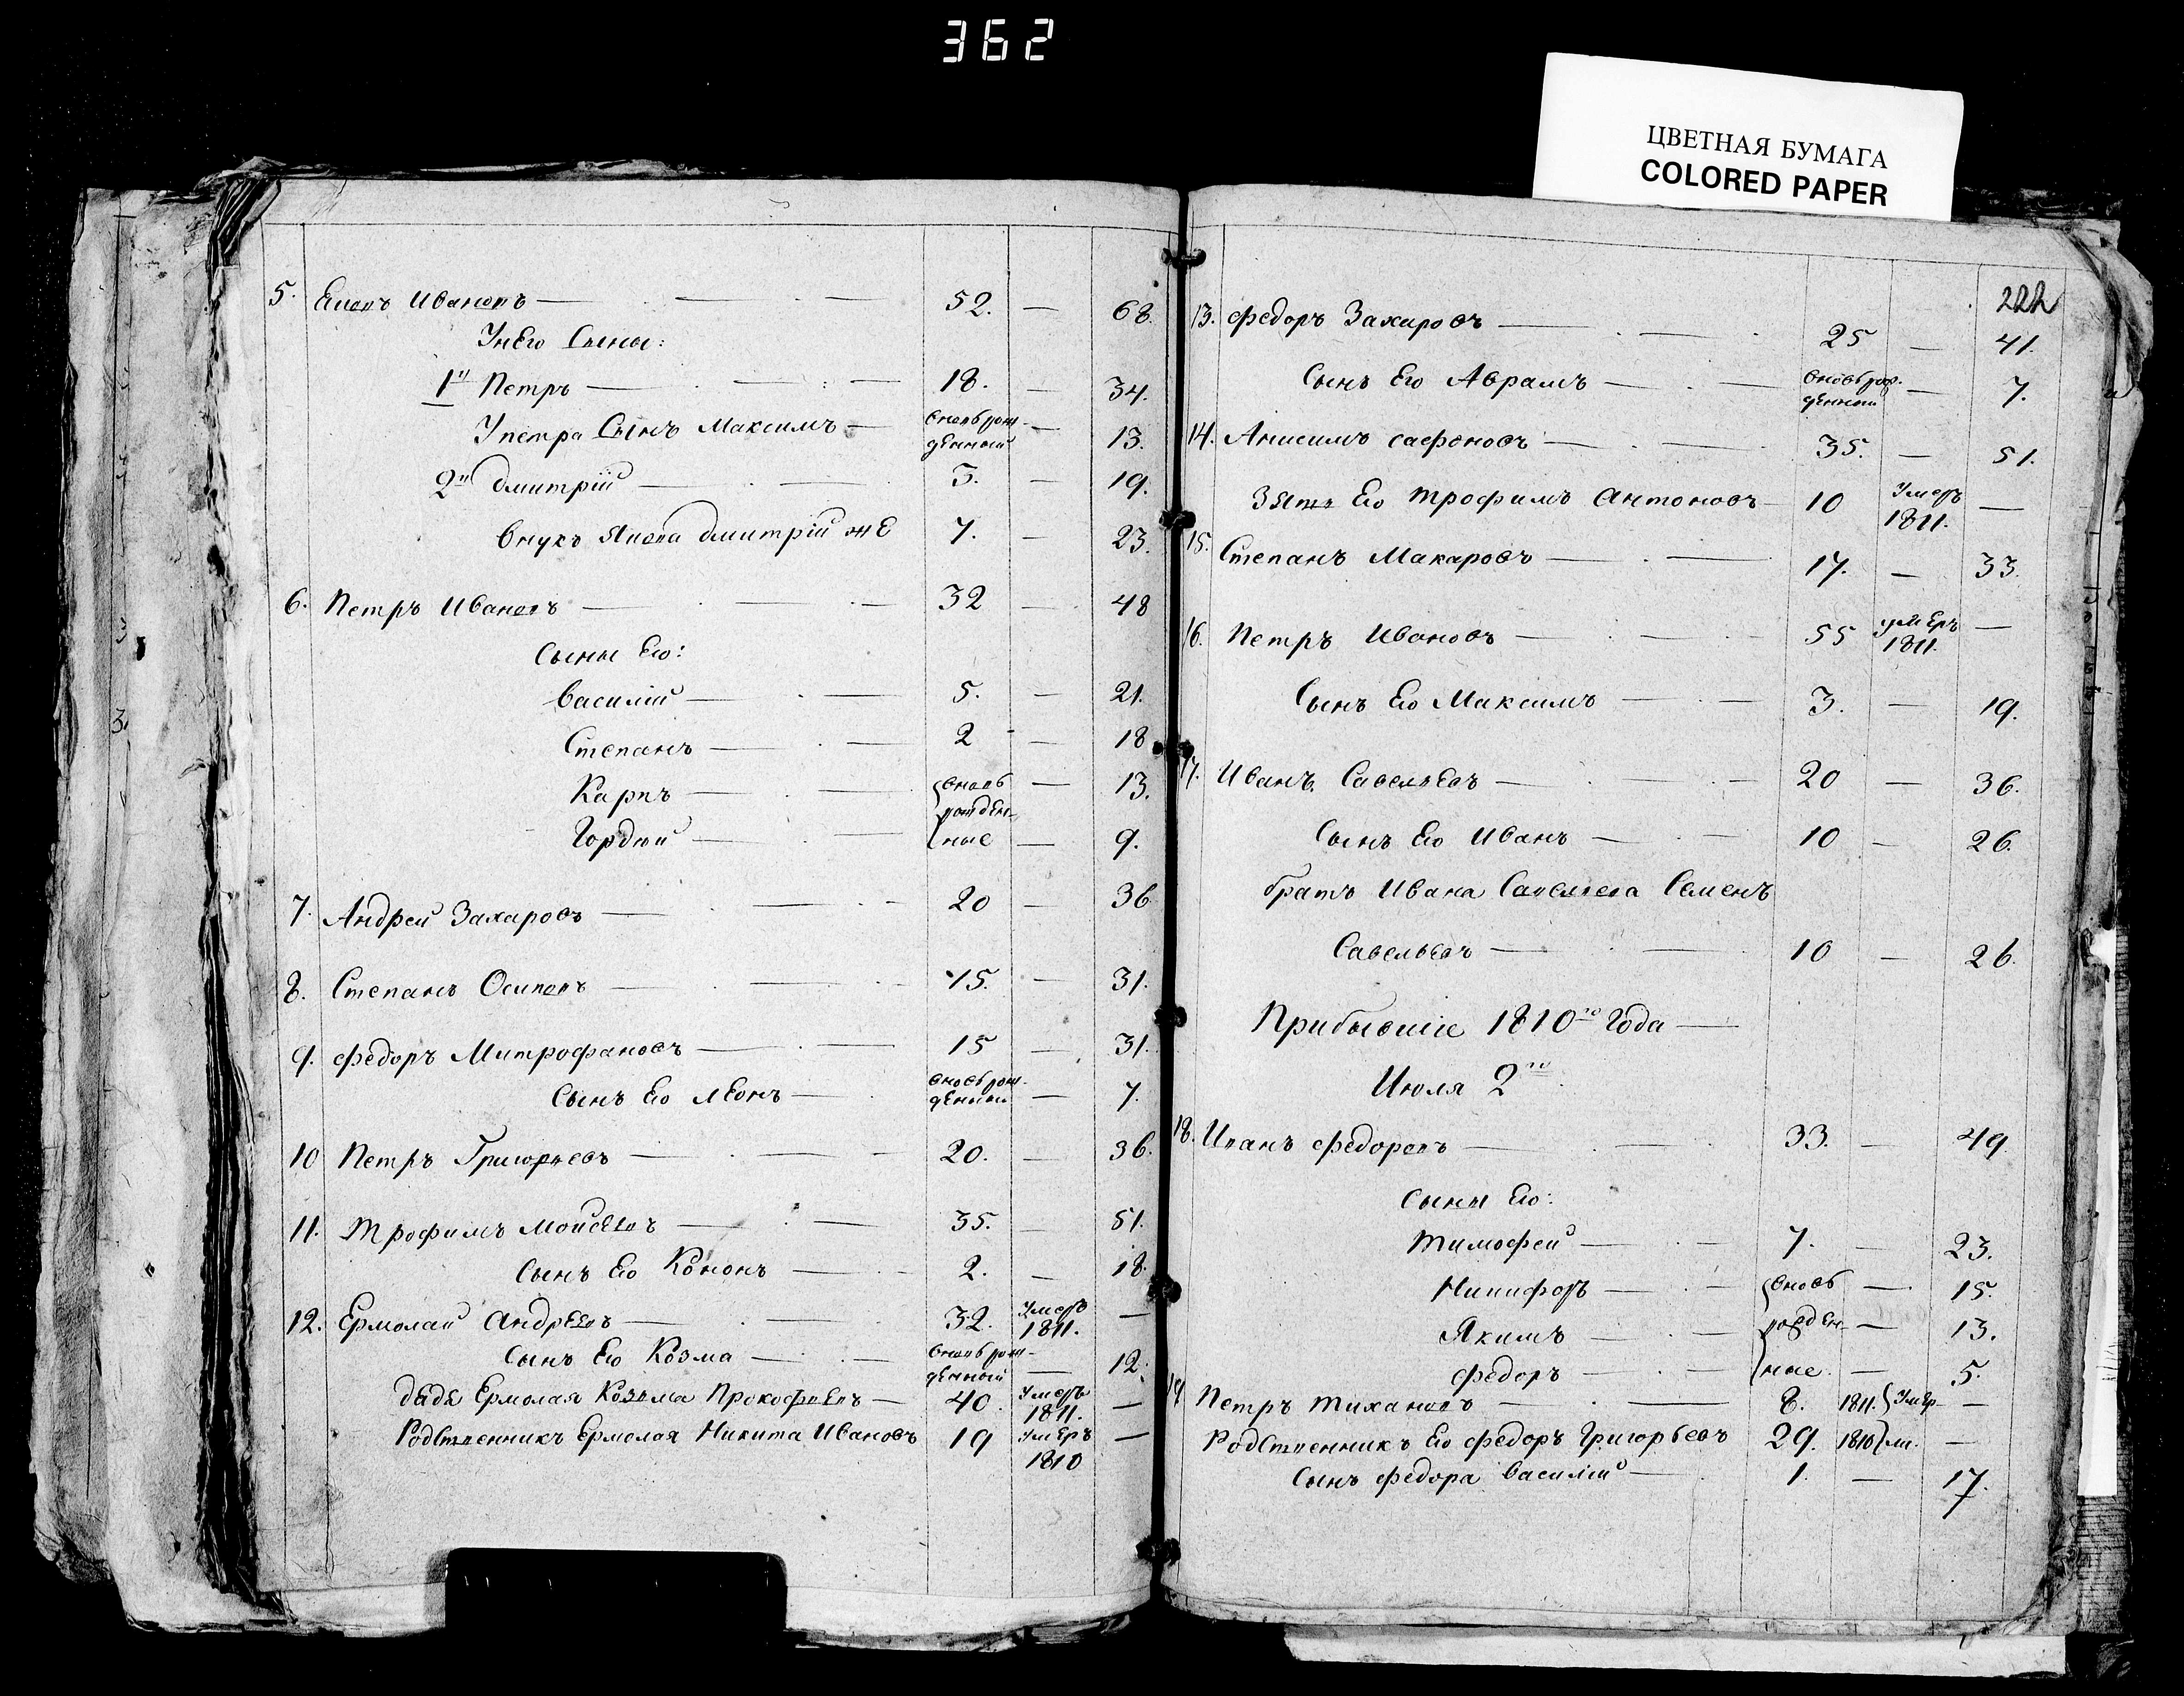 362
ЦВЕТНАЯ БУМАГА
COLORED PAPER
5. Ивановъ — 52. — 68.
У него Сыны:
1й Петръ — 18. — 34.
У петра Сынъ Максимъ — вновь рож- — 13.
денный
2й дмитрій — 3. — 19.
внукъ дмитрій же 7. — 23.
6. Петръ Ивановъ — 32 — 48
Сыны Его:
Василій — 5. — 21.
Степанъ — 2 — 18
Карпъ — вновь — 13.
рожден-
Гордѣй — ные — 9.
7. Андрей Захаровъ — 20 — 36
8. Степанъ Осиповъ — 15. — 31.
9. федоръ Митрофановъ — 15 — 31.
Сынъ Его леонъ — вновь рож- — 7.
денный
10 Петръ Григорьевъ — 20. — 36.
11. Трофимъ Мойсеевъ — 35. — 51.
Сынъ Его Кононъ — 2. — 18.
12. Ермолай андреевъ — 32. Умеръ —
1811.
Сынъ Его Козма — вновь рож- — 12.
денный
дядя Ермолая Козьма Прокофьевъ — 40. Умеръ —
1811.
Родственникъ Ермолая Никита Ивановъ 19 умеръ —
1810
222
13. федоръ Захаровъ — 25 — 41.
Сынъ Его Аврамъ — вновь рож- — 7.
денный
14. Анисимъ сафоновъ — 35. — 51.
Зять Его трофимъ антоновъ — 10 Умеръ —
1811.
15. Степанъ Макаровъ — 17. — 33.
16. Петръ Ивановъ — 55 умеръ —
1811.
Сынъ Его Максимъ — 3. — 19.
17. Иванъ Савельевъ — 20 — 36.
Сынъ Его Иванъ — 10 — 26.
братъ Ивана Савельева Семенъ
Савельевъ — 10 — 26.
Прибывшіе 1810го Года —
Июля 2го
18. Иванъ федоровъ — 33. — 49
Сыны Его:
Тимофей — 7. — 23.
Никифоръ — вновь — 15.
Якимъ — рожден- — 13.
федоръ — ные — 5.
19 Петръ тихановъ — 8. 1811. Умер- —
Родственникъ Его федоръ Григорьевъ 29. 1810 ли. —
Сынъ федора Василій — 1. — 17.